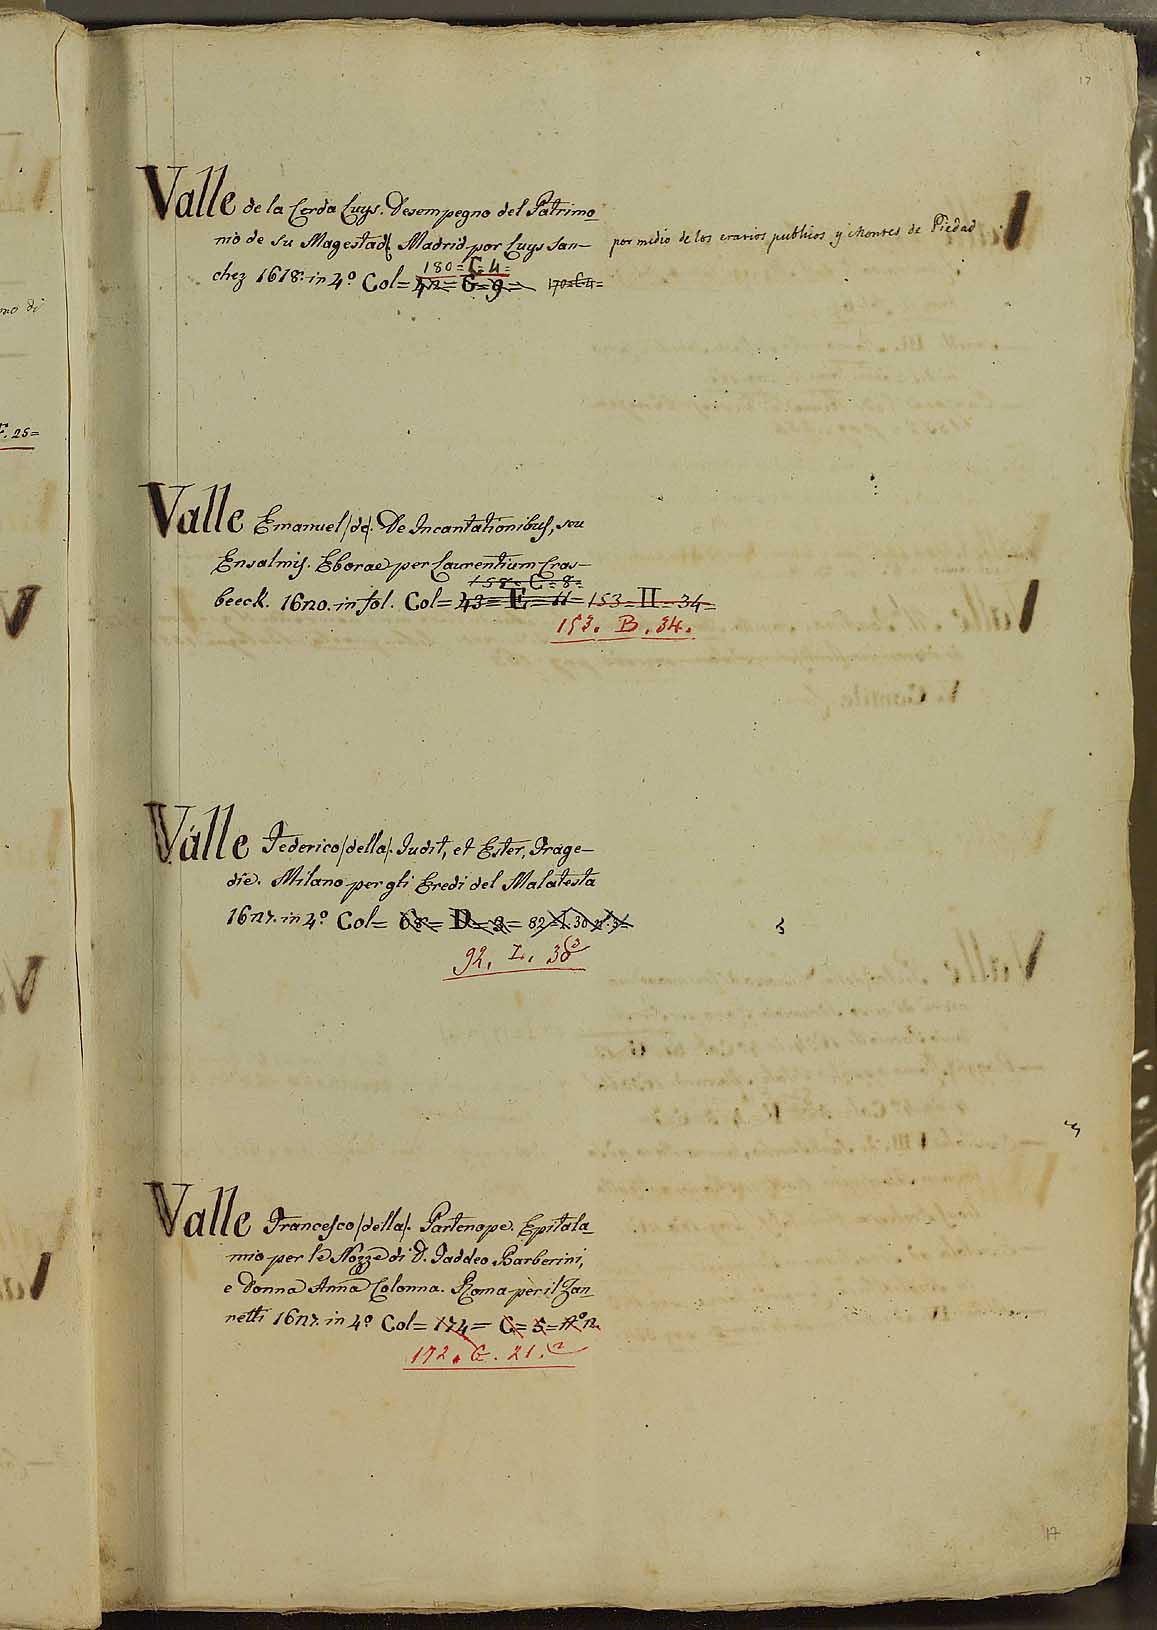 17
Valle de la Cerda Luys. Desempegno del Patrimo=
nio de su Magestad/ Madrid por Luys San-
por medio de los erarios publicos y Montes de Piedad
180=C=4=
chez 1618. in 4º Col= 42= G= 9= 170=C4=
no di
F. 25=
Valle Emanuel /de/. De Incantationibus, seu
Ensalmis. Eborae per Laurentium Cras-
158= C= 8=
beeck. 1620. in fol. Col= 43= E= 11= 153= II= 34=
153. B. 34.
Valle Federico /della/. Iudit, et Ester, Trage-
die. Milano per gli Eredi del Malatesta
1627. in 4º Col= 68= D= 3=
92. L. 38
Valle Francesco /della/. Partenope. Epitala=
mio per le Nozze di D. Taddeo Barberini,
e Donna Anna Colonna. Roma per il Zan=
netti 1627. in 4º Col= 174= C= 5= nº 2.
172. G. 21. 2
17